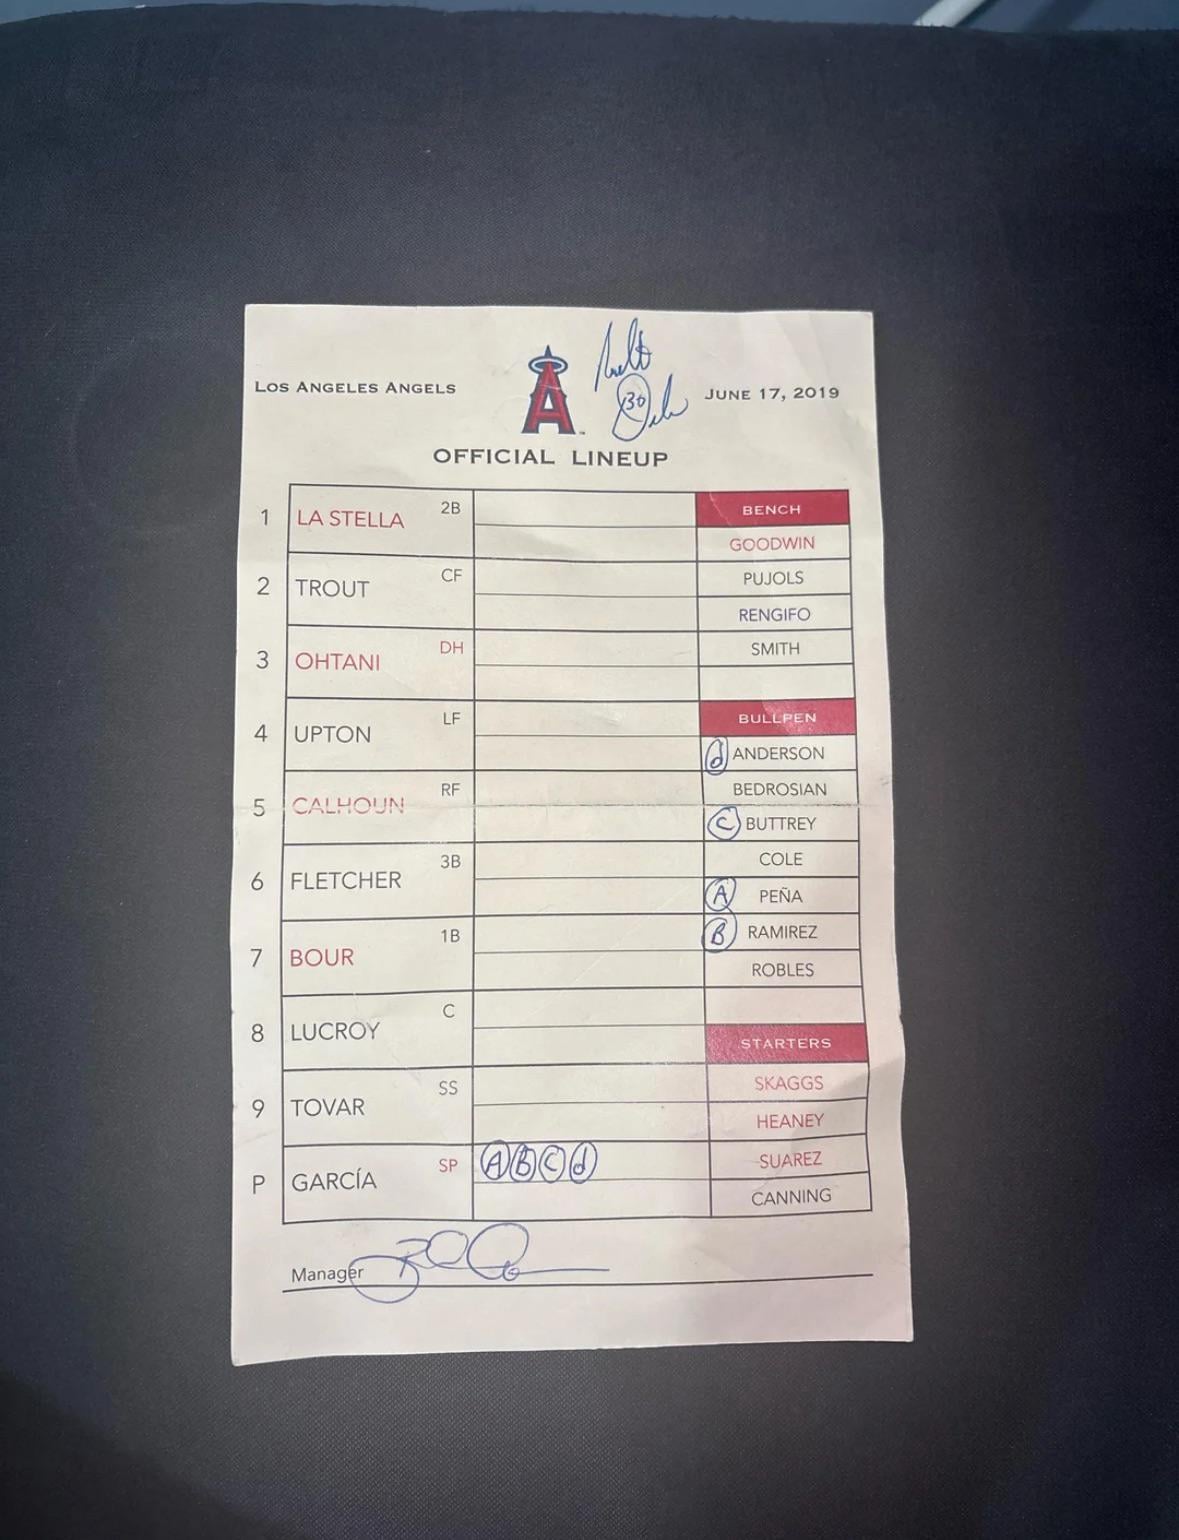 LOS ANGELES ANGELS
A
30
JUNE 17, 2019
OFFICIAL LINEUP
1 LA STELLA 2B
2 TROUT CF
3 OHTANI DH
4 UPTON LF
5 CALHOUN RF
6 FLETCHER 3B
7 BOUR 1B
8 LUCROY C
9 TOVAR SS
P GARCÍA SP A B C d
BENCH
GOODWIN
PUJOLS
RENGIFO
SMITH
BULLPEN
d ANDERSON
BEDROSIAN
C BUTTREY
COLE
A PEÑA
B RAMIREZ
ROBLES
STARTERS
SKAGGS
HEANEY
SUAREZ
CANNING
Manager